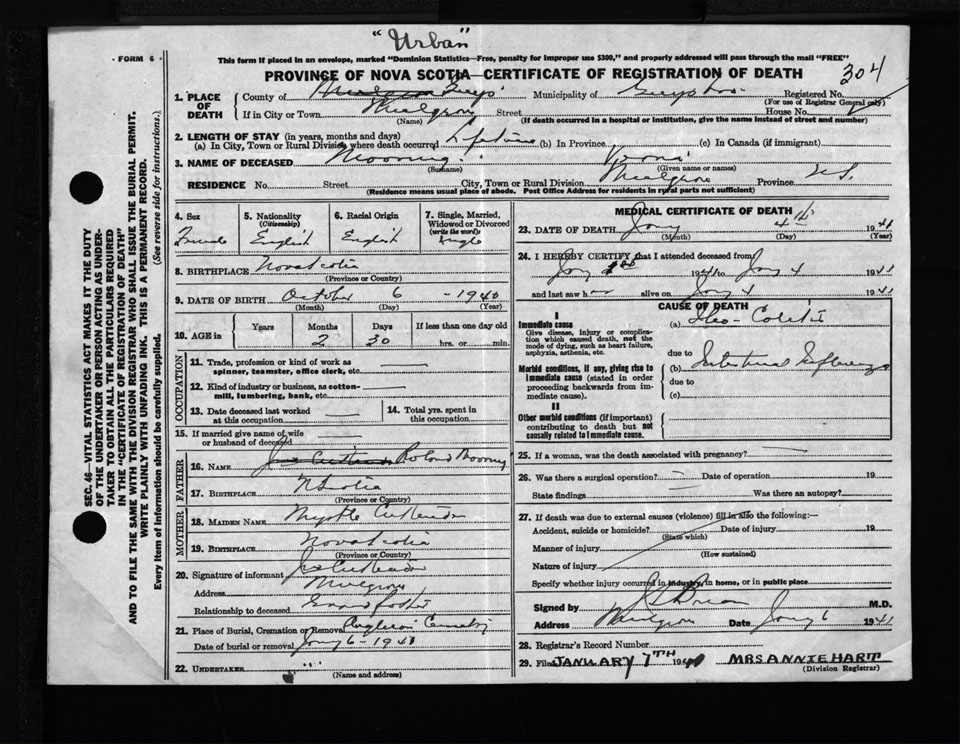 "Urban"
FORM 6
This form if placed in an envelope, marked "Dominion Statistics—Free, penalty for improper use $300," and properly addressed will pass through the mail "FREE"
PROVINCE OF NOVA SCOTIA—CERTIFICATE OF REGISTRATION OF DEATH
304
1. PLACE OF DEATH
County of Guys Municipality of Guysboro Registered No.
(For use of Registrar General only)
If in City or Town Mulgrave Street House No.
(Name) (If death occurred in a hospital or institution, give the name instead of street and number)
2. LENGTH OF STAY (in years, months and days)
(a) In City, Town or Rural Division where death occurred Lifetime (b) In Province (c) In Canada (if immigrant)
3. NAME OF DECEASED Mooring
(Surname) (Given name or names)
RESIDENCE No. Street City, Town or Rural Division Mulgrave Province N.S.
(Residence means usual place of abode. Post Office Address for residents in rural parts not sufficient)
SEC. 46—VITAL STATISTICS ACT MAKES IT THE DUTY
OF THE UNDERTAKER OR PERSON ACTING AS UNDER-
TAKER TO OBTAIN ALL THE PARTICULARS REQUIRED
IN THE "CERTIFICATE OF REGISTRATION OF DEATH"
AND TO FILE THE SAME WITH THE DIVISION REGISTRAR WHO SHALL ISSUE THE BURIAL PERMIT.
WRITE PLAINLY WITH UNFADING INK. THIS IS A PERMANENT RECORD.
Every item of information should be carefully supplied. (See reverse side for instructions.)
4. Sex
Female
5. Nationality
(Citizenship)
English
6. Racial Origin
English
7. Single, Married,
Widowed or Divorced
(write the word)
Single
8. BIRTHPLACE Nova Scotia
(Province or Country)
9. DATE OF BIRTH October 6 - 1940
(Month) (Day) (Year)
10. AGE in
Years Months Days If less than one day old
2 30 hrs. or min.
OCCUPATION
11. Trade, profession or kind of work as
spinner, teamster, office clerk, etc.
12. Kind of industry or business, as cotton-
mill, lumbering, bank, etc.
13. Date deceased last worked
at this occupation
14. Total yrs. spent in
this occupation
15. If married give name of wife
or husband of deceased
FATHER
16. NAME Roland Mooring
17. BIRTHPLACE N Scotia
(Province or Country)
MOTHER
18. MAIDEN NAME Myrtle
19. BIRTHPLACE Nova Scotia
(Province or Country)
20. Signature of informant
Address Mulgrave
Relationship to deceased
21. Place of Burial, Cremation or Removal Anglican Cemetery
Date of burial or removal Jany 6 - 1941
22. UNDERTAKER
(Name and address)
MEDICAL CERTIFICATE OF DEATH
23. DATE OF DEATH Jany 4th 1941
(Month) (Day) (Year)
24. I HEREBY CERTIFY that I attended deceased from
Jany 1941 to Jany 4 1941
and last saw her alive on Jany 4 1941
CAUSE OF DEATH
I
Immediate cause
Give disease, injury or complica-
tion which caused death, not the
mode of dying, such as heart failure,
asphyxia, asthenia, etc.
(a) Ileo-Colitis
due to
Morbid conditions, if any, giving rise to
immediate cause (stated in order
proceeding backwards from im-
mediate cause).
(b) Intestinal Influenza
due to
(c)
II
Other morbid conditions (if important)
contributing to death but not
causally related to immediate cause.
25. If a woman, was the death associated with pregnancy?
26. Was there a surgical operation? Date of operation 19
State findings Was there an autopsy?
27. If death was due to external causes (violence) fill in also the following:—
Accident, suicide or homicide? Date of injury 19
(State which)
Manner of injury
(How sustained)
Nature of injury
Specify whether injury occurred in industry, in home, or in public place
Signed by M.D.
Address Mulgrave Date Jany 6 1941
28. Registrar's Record Number
29. Filed JANUARY 7TH 19 MRS ANNIE HART
(Division Registrar)